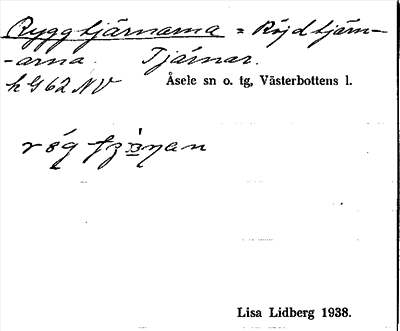 Ryggtjärnarna = Röjdtjärn-
-arna. Tjärnar.
h G 62 NV Åsele sn o. tg, Västerbottens l.
Lisa Lidberg 1938.